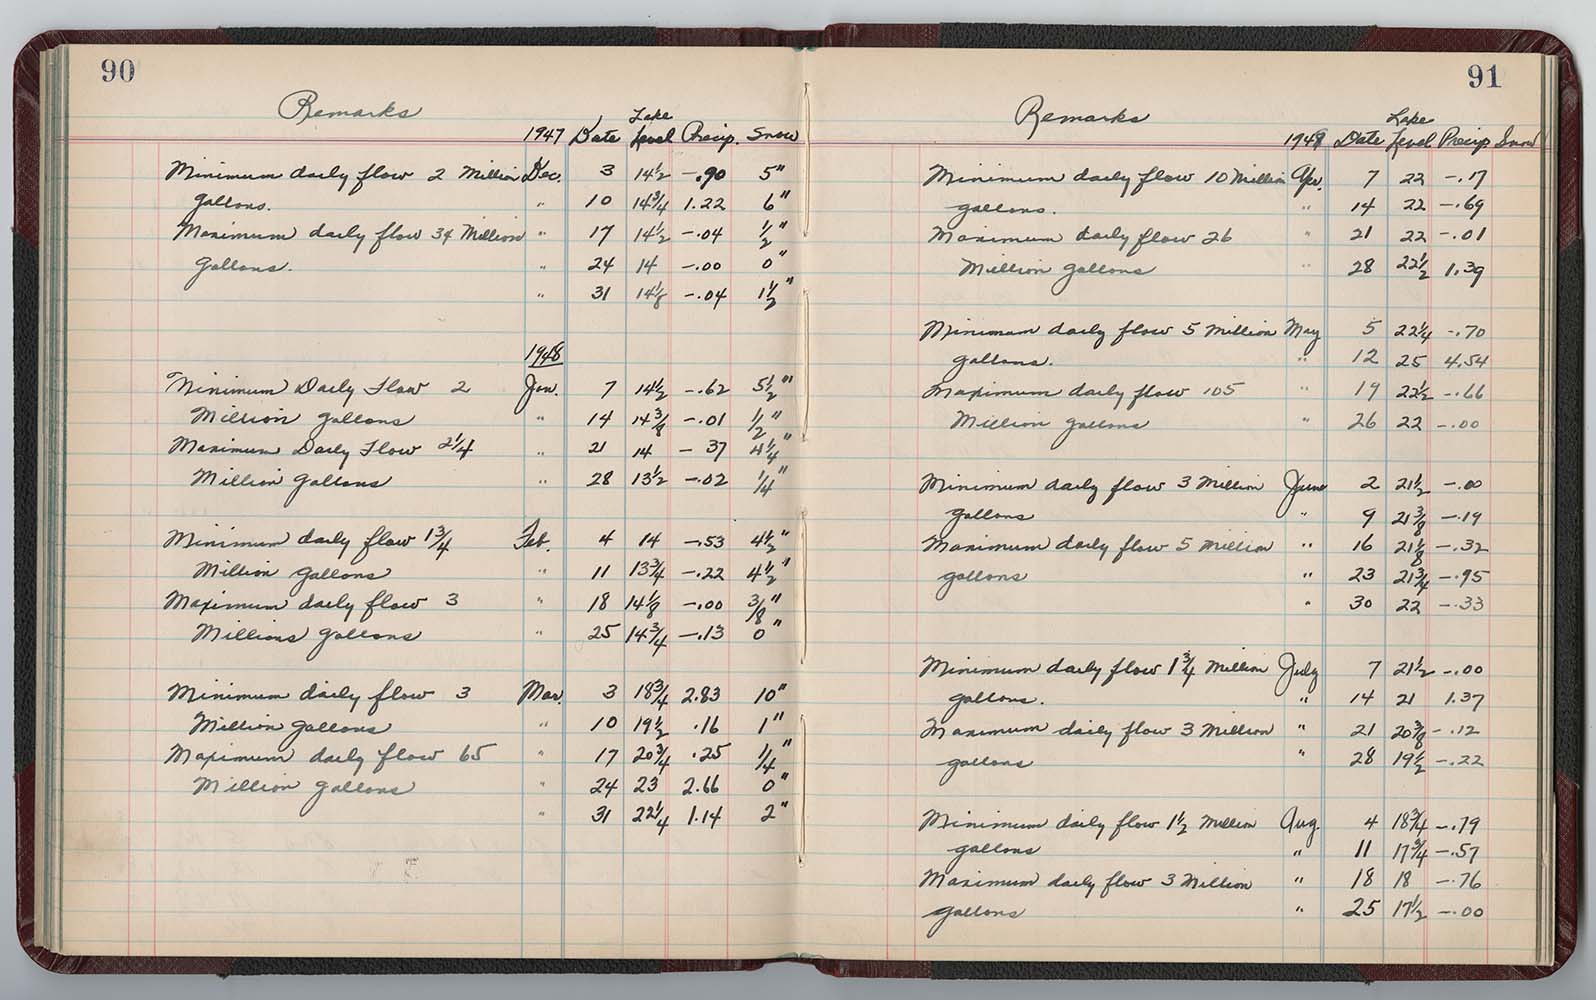 90
Remarks
1947 Date Lake Level Precip. Snow
Minimum daily flow 2 Million Dec. 3 14 1/2 -.90 5"
gallons. " 10 14 3/4 1.22 6"
Maximum daily flow 34 Million " 17 14 1/2 -.04 1/2"
gallons. " 24 14 -.00 0"
" 31 14 1/8 -.04 1 1/2"
1948
Minimum Daily Flow 2 Jan. 7 14 1/2 -.62 5 1/2"
Million gallons " 14 14 3/8 -.01 1/2"
Maximum Daily Flow 2 1/4 " 21 14 - 37 4 1/4"
Million gallons " 28 13 1/2 -.02 1/4"
Minimum daily flow 1 3/4 Feb. 4 14 -.53 4 1/2"
Million gallons " 11 13 3/4 -.22 4 1/2"
Maximum daily flow 3 " 18 14 1/8 -.00 3/8"
Millions gallons " 25 14 3/4 -.13 0"
Minimum daily flow 3 Mar. 3 18 3/4 2.83 10"
Million gallons " 10 19 1/2 .16 1"
Maximum daily flow 65 " 17 20 3/4 .25 1/4"
Million gallons " 24 23 2.66 0"
" 31 22 1/4 1.14 2"
91
Remarks
1948 Date Lake Level Precip Snow
Minimum daily flow 10 Million Apr. 7 22 -.17
gallons. " 14 22 -.69
Maximum daily flow 26 " 21 22 -.01
Million gallons " 28 22 1/2 1.39
Minimum daily flow 5 Million May 5 22 1/4 -.70
gallons. " 12 25 4.54
Maximum daily flow 105 " 19 22 1/2 -.66
Million gallons " 26 22 -.00
Minimum daily flow 3 Million June 2 21 1/2 -.00
gallons " 9 21 3/8 -.19
Maximum daily flow 5 Million " 16 21 1/8 -.32
gallons " 23 21 3/4 -.95
" 30 22 -.33
Minimum daily flow 1 3/4 Million July 7 21 1/2 -.00
gallons. " 14 21 1.37
Maximum daily flow 3 Million " 21 20 3/8 -.12
gallons " 28 19 1/2 -.22
Minimum daily flow 1 1/2 Million Aug. 4 18 3/4 -.79
gallons " 11 17 3/4 -.57
Maximum daily flow 3 Million " 18 18 -.76
gallons " 25 17 1/2 -.00